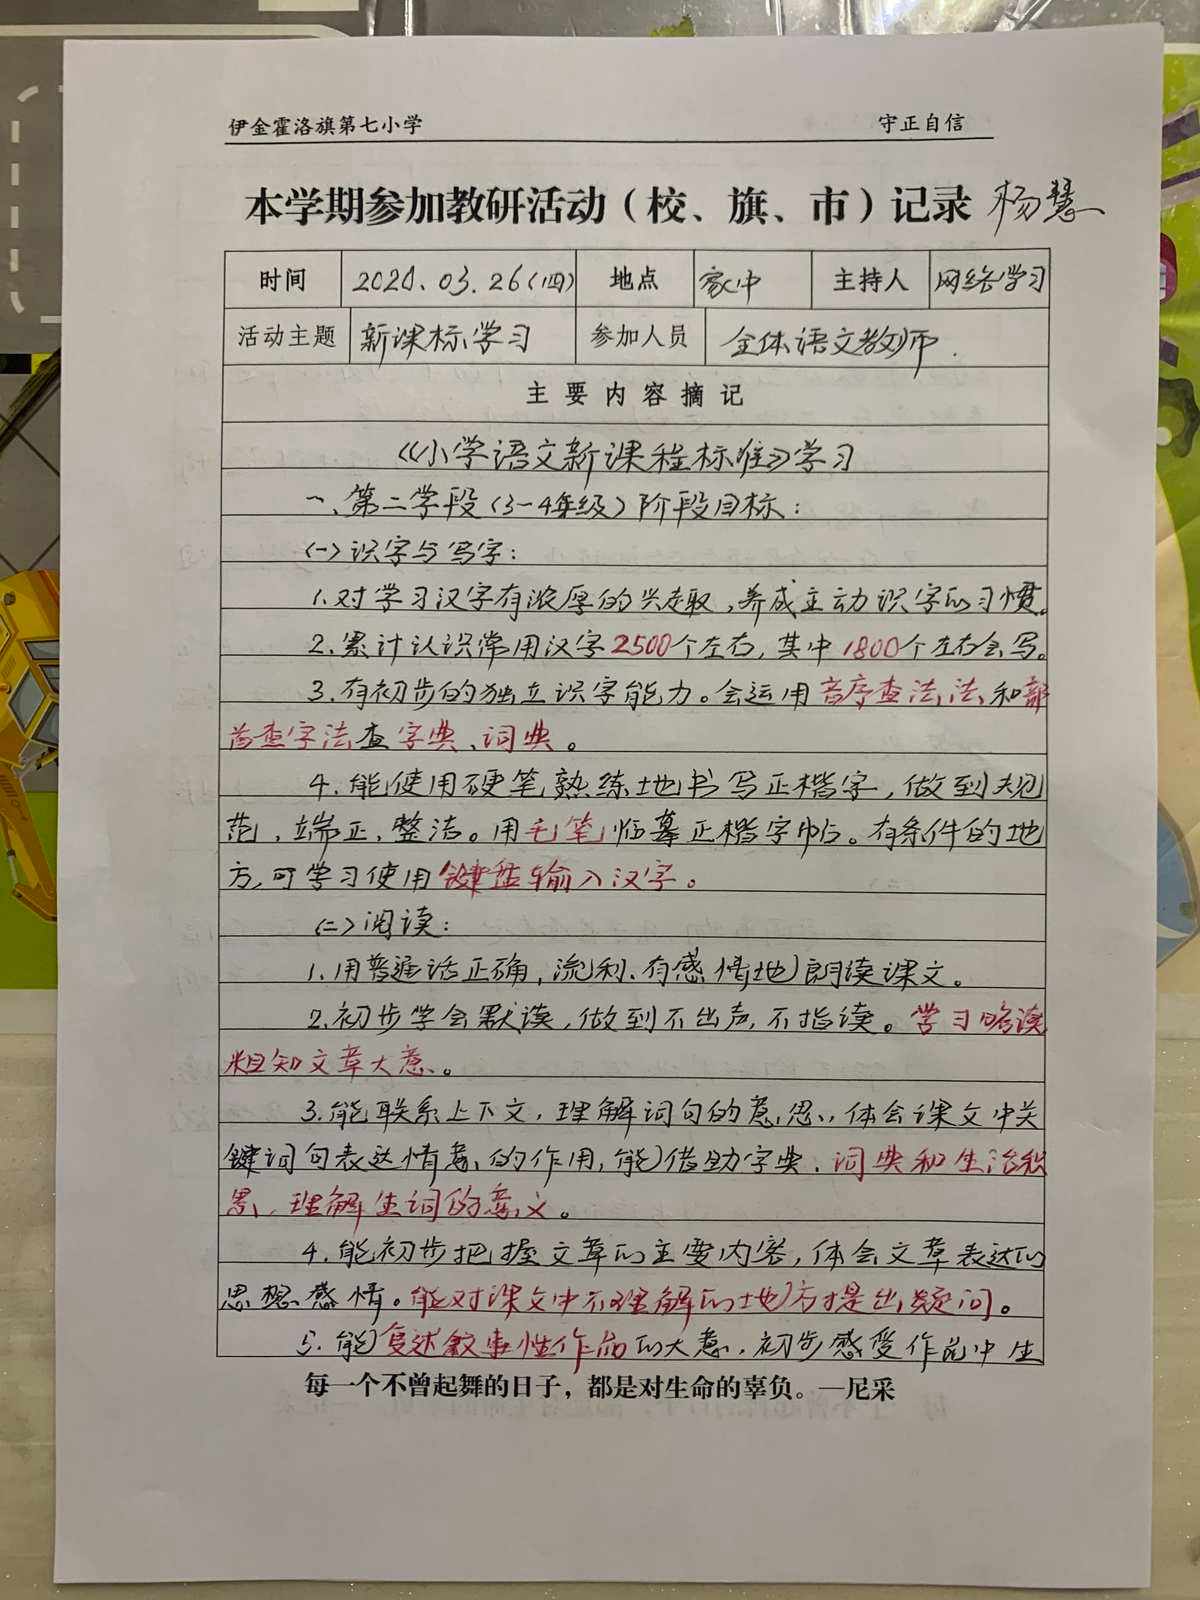 伊金霍洛旗第七小学 守正自信
本学期参加教研活动（校、旗、市）记录 杨慧
时间 2020.03.26(四) 地点 家中 主持人 网络学习
活动主题 新课标学习 参加人员 全体语文教师.
主要内容摘记
《小学语文新课程标准》学习
一、第二学段（3-4年级）阶段目标：
(一)识字与写字：
1.对学习汉字有浓厚的兴趣，养成主动识字的习惯。
2.累计认识常用汉字2500个左右，其中1800个左右会写。
3.有初步的独立识字能力。会运用音序查法法和部
首查字法查字典、词典。
4.能使用硬笔熟练地书写正楷字，做到规
范，端正，整洁。用毛笔临摹正楷字帖。有条件的地
方，可学习使用键盘输入汉字。
(二)阅读：
1.用普通话正确，流利、有感情地朗读课文。
2.初步学会默读，做到不出声，不指读。学习略读
粗知文章大意。
3.能联系上下文，理解词句的意思，体会课文中关
键词句表达情意的作用，能借助字典、词典和生活积
累，理解生词的意义。
4.能初步把握文章的主要内容，体会文章表达的
思想感情。能对课文中不理解的地方提出疑问。
5.能复述叙事性作品的大意，初步感受作品中生
每一个不曾起舞的日子，都是对生命的辜负。—尼采